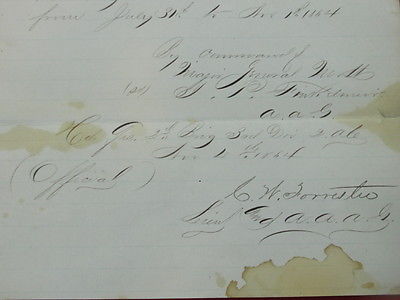 from July 31st to Nov 1st 1864
By command of
Major General Mott
(sd) J. P.
A. A. G.
Hd Qrs 2d Brig 3rd Div 2. A C
Nov 2th 1864
(Official)
C. W. Forrester
Lieut & A. A. A. G.